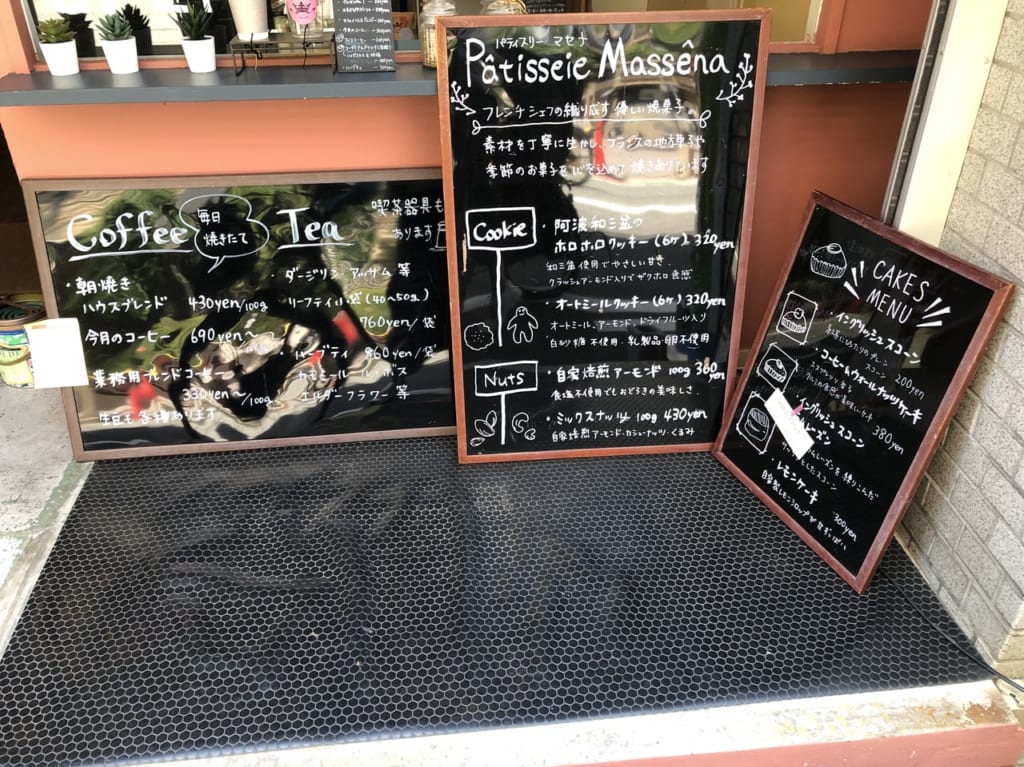 Coffee
毎日
焼きたて
Tea
喫茶器具も
あります
・朝焼き
ハウスブレンド 430yen/100g
今月のコーヒー 690yen〜
業務用ブレンドコーヒー
330yen〜/100g
生豆も各種あります
・ダージリン・アッサム 等
リーフティ小袋(40〜50g)
760yen/袋
・ハーブティ 860yen/袋
エルダーフラワー 等
パティスリー マセナ
Pâtisseie Massêna
フレンチシェフの織り成す 優しい焼菓子。
素材を丁寧に生かし、フランスの地方菓子や
季節のお菓子を心を込めて焼きあげています
Cookie
・阿波和三盆の
ホロホロクッキー(6ケ) 320yen
和三盆使用でやさしい甘さ
クラッシュアーモンド入りでザクホロ食感
・オートミールクッキー(6ケ) 320yen
オートミール、アーモンド、ドライフルーツ入り
白砂糖不使用・乳製品・卵不使用
Nuts
・自家焙煎アーモンド 100g 360yen
食塩不使用でもおどろきの美味しさ
・ミックスナッツ 100g 430yen
自家焙煎アーモンド・カシューナッツ・くるみ
CAKES
MENU
・イングリッシュスコーン
200yen
コーヒーウォールナッツケーキ
380yen
・イングリッシュスコーン
レモンケーキ
300yen